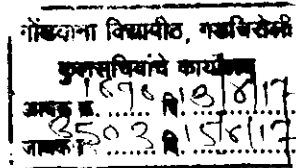 गोंडवाना विद्यापीठ, गडचिरोली
कुलसचिवांचे कार्यालय
आवक क्र. 1696 दि. 13/6/17
जावक क्र. 3503 दि. 15/6/17